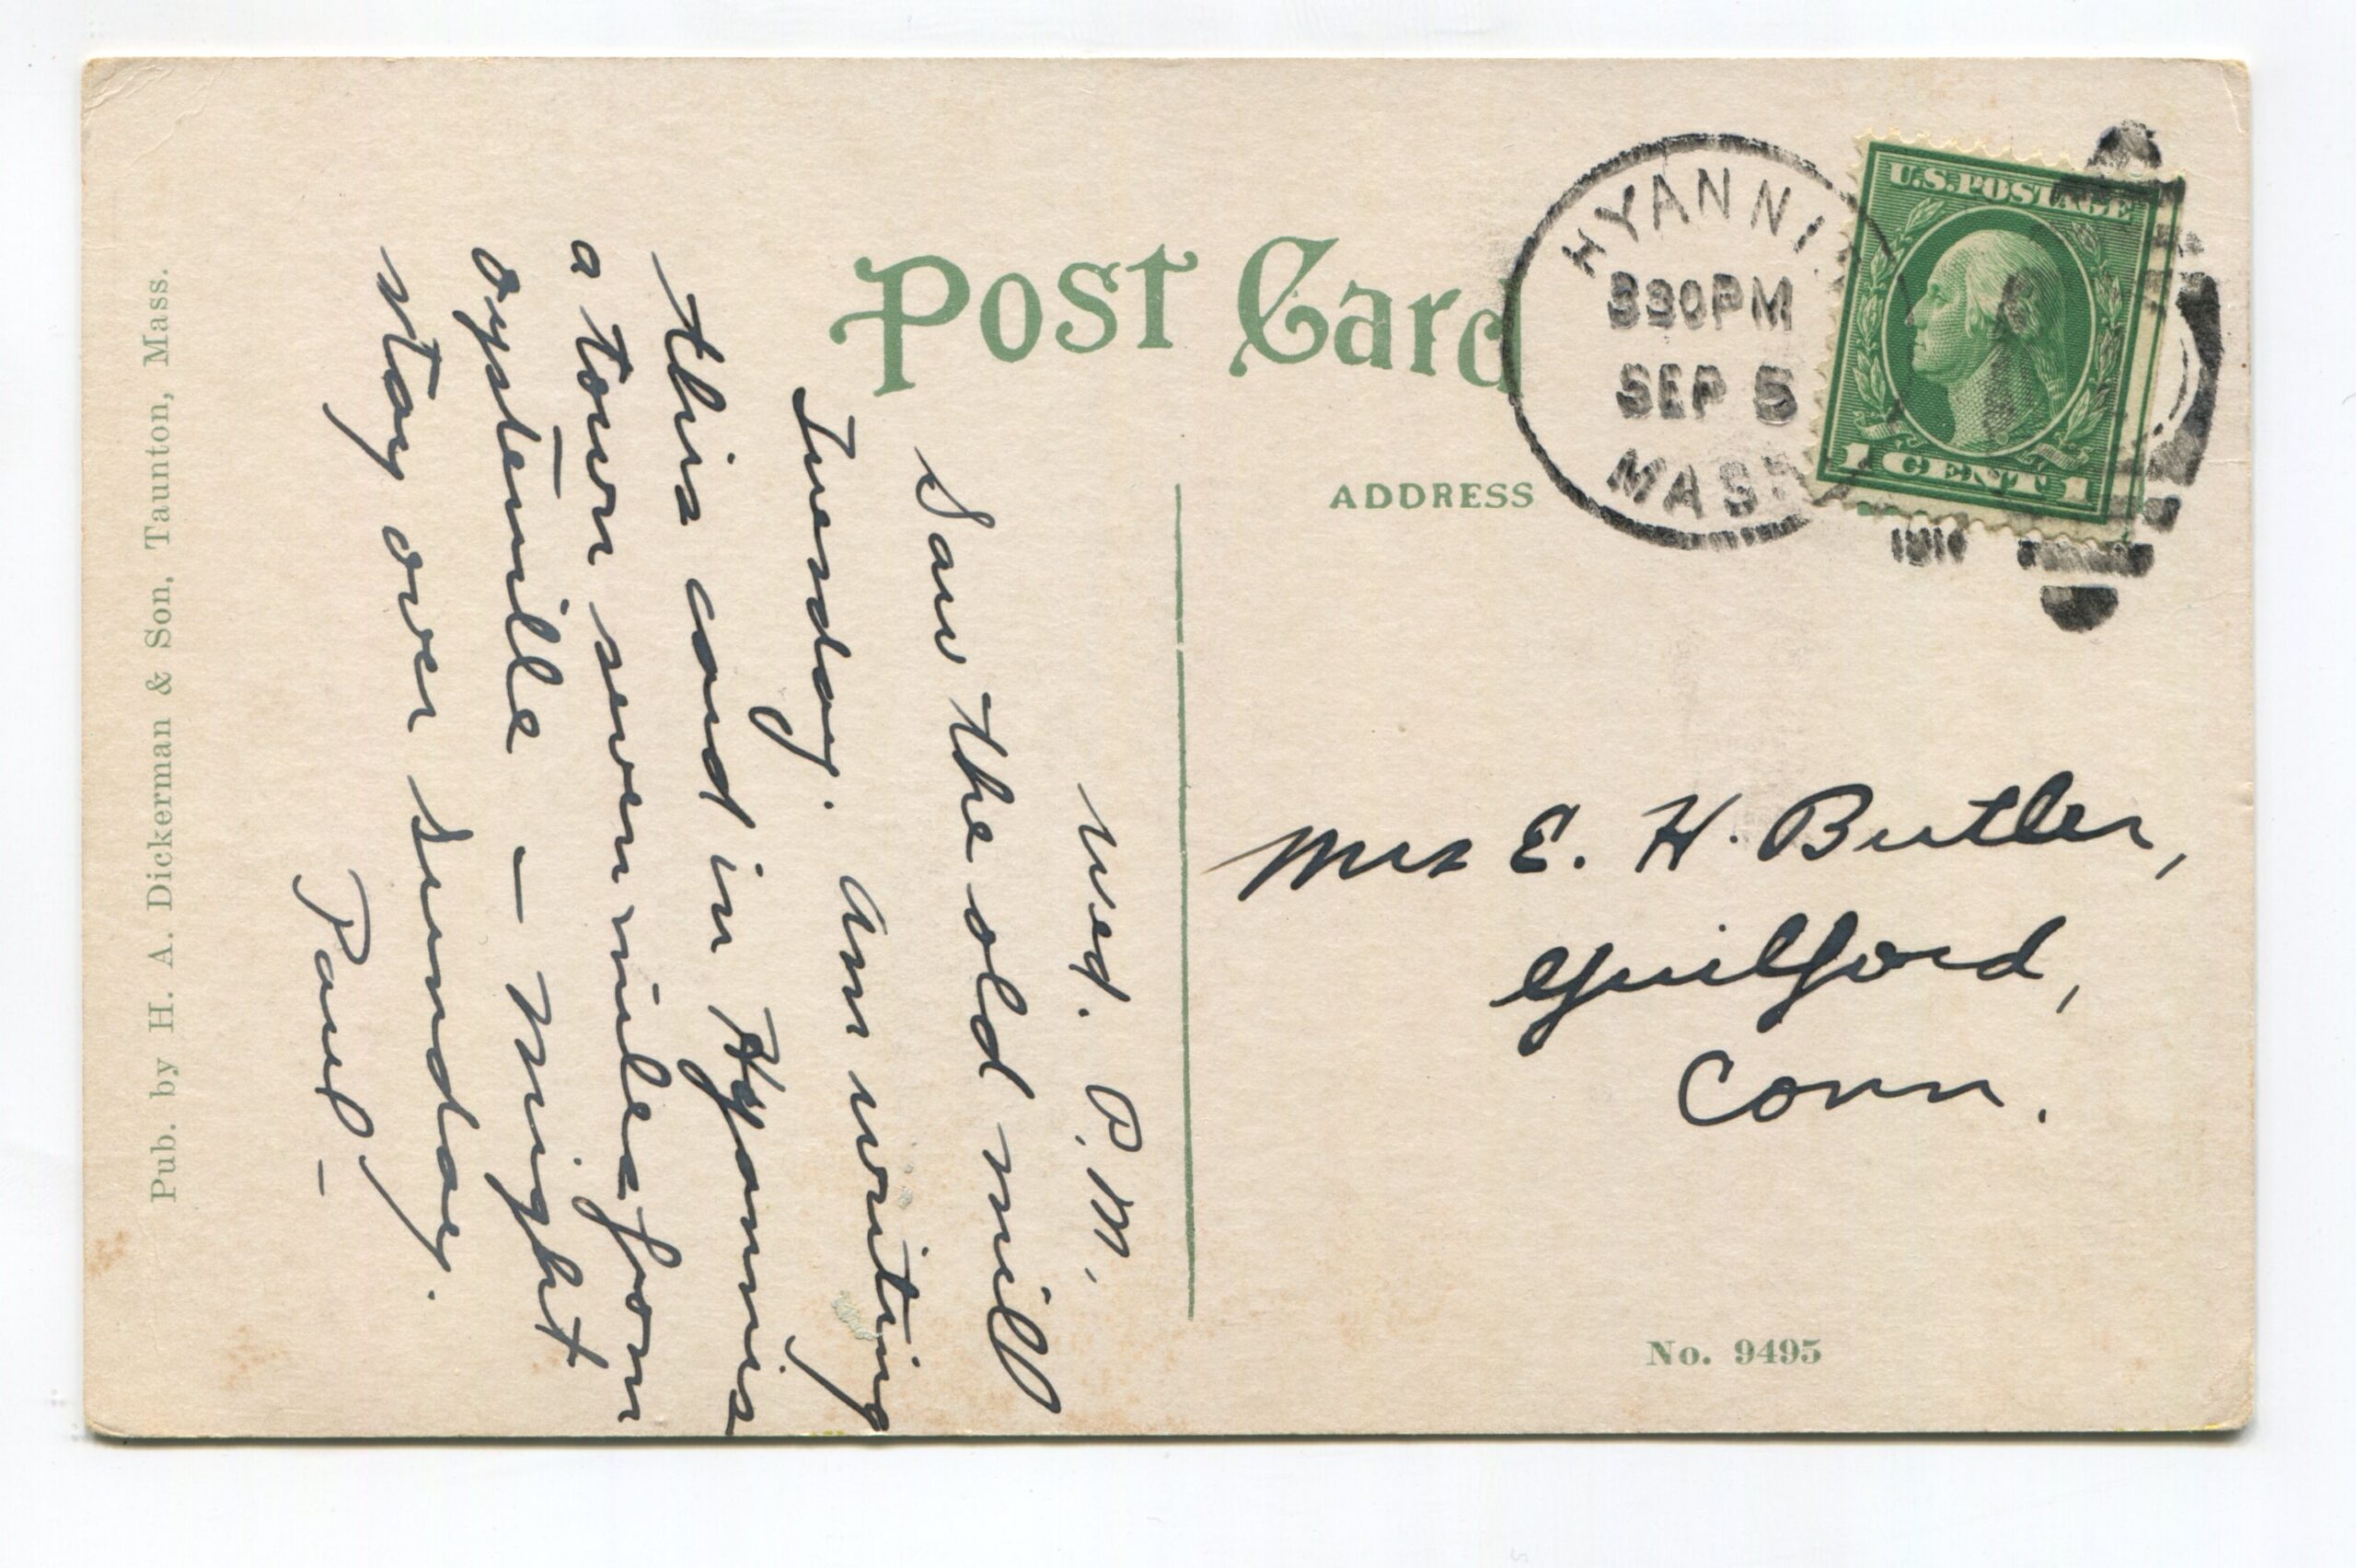 Post Card
HYANNI
330PM
SEP 5
MASS
U.S. POSTAGE
1 CENT 1
ADDRESS
Wed. P.M.
Saw the old mill
Tuesday. Am writing
this card in Hyannis
a town seven miles from
oysterville - Might
stay over Sunday.
Paul -
Mrs E. H. Butler,
Guilford,
Conn.
No. 9495
Pub. by H. A. Dickerman & Son, Taunton, Mass.